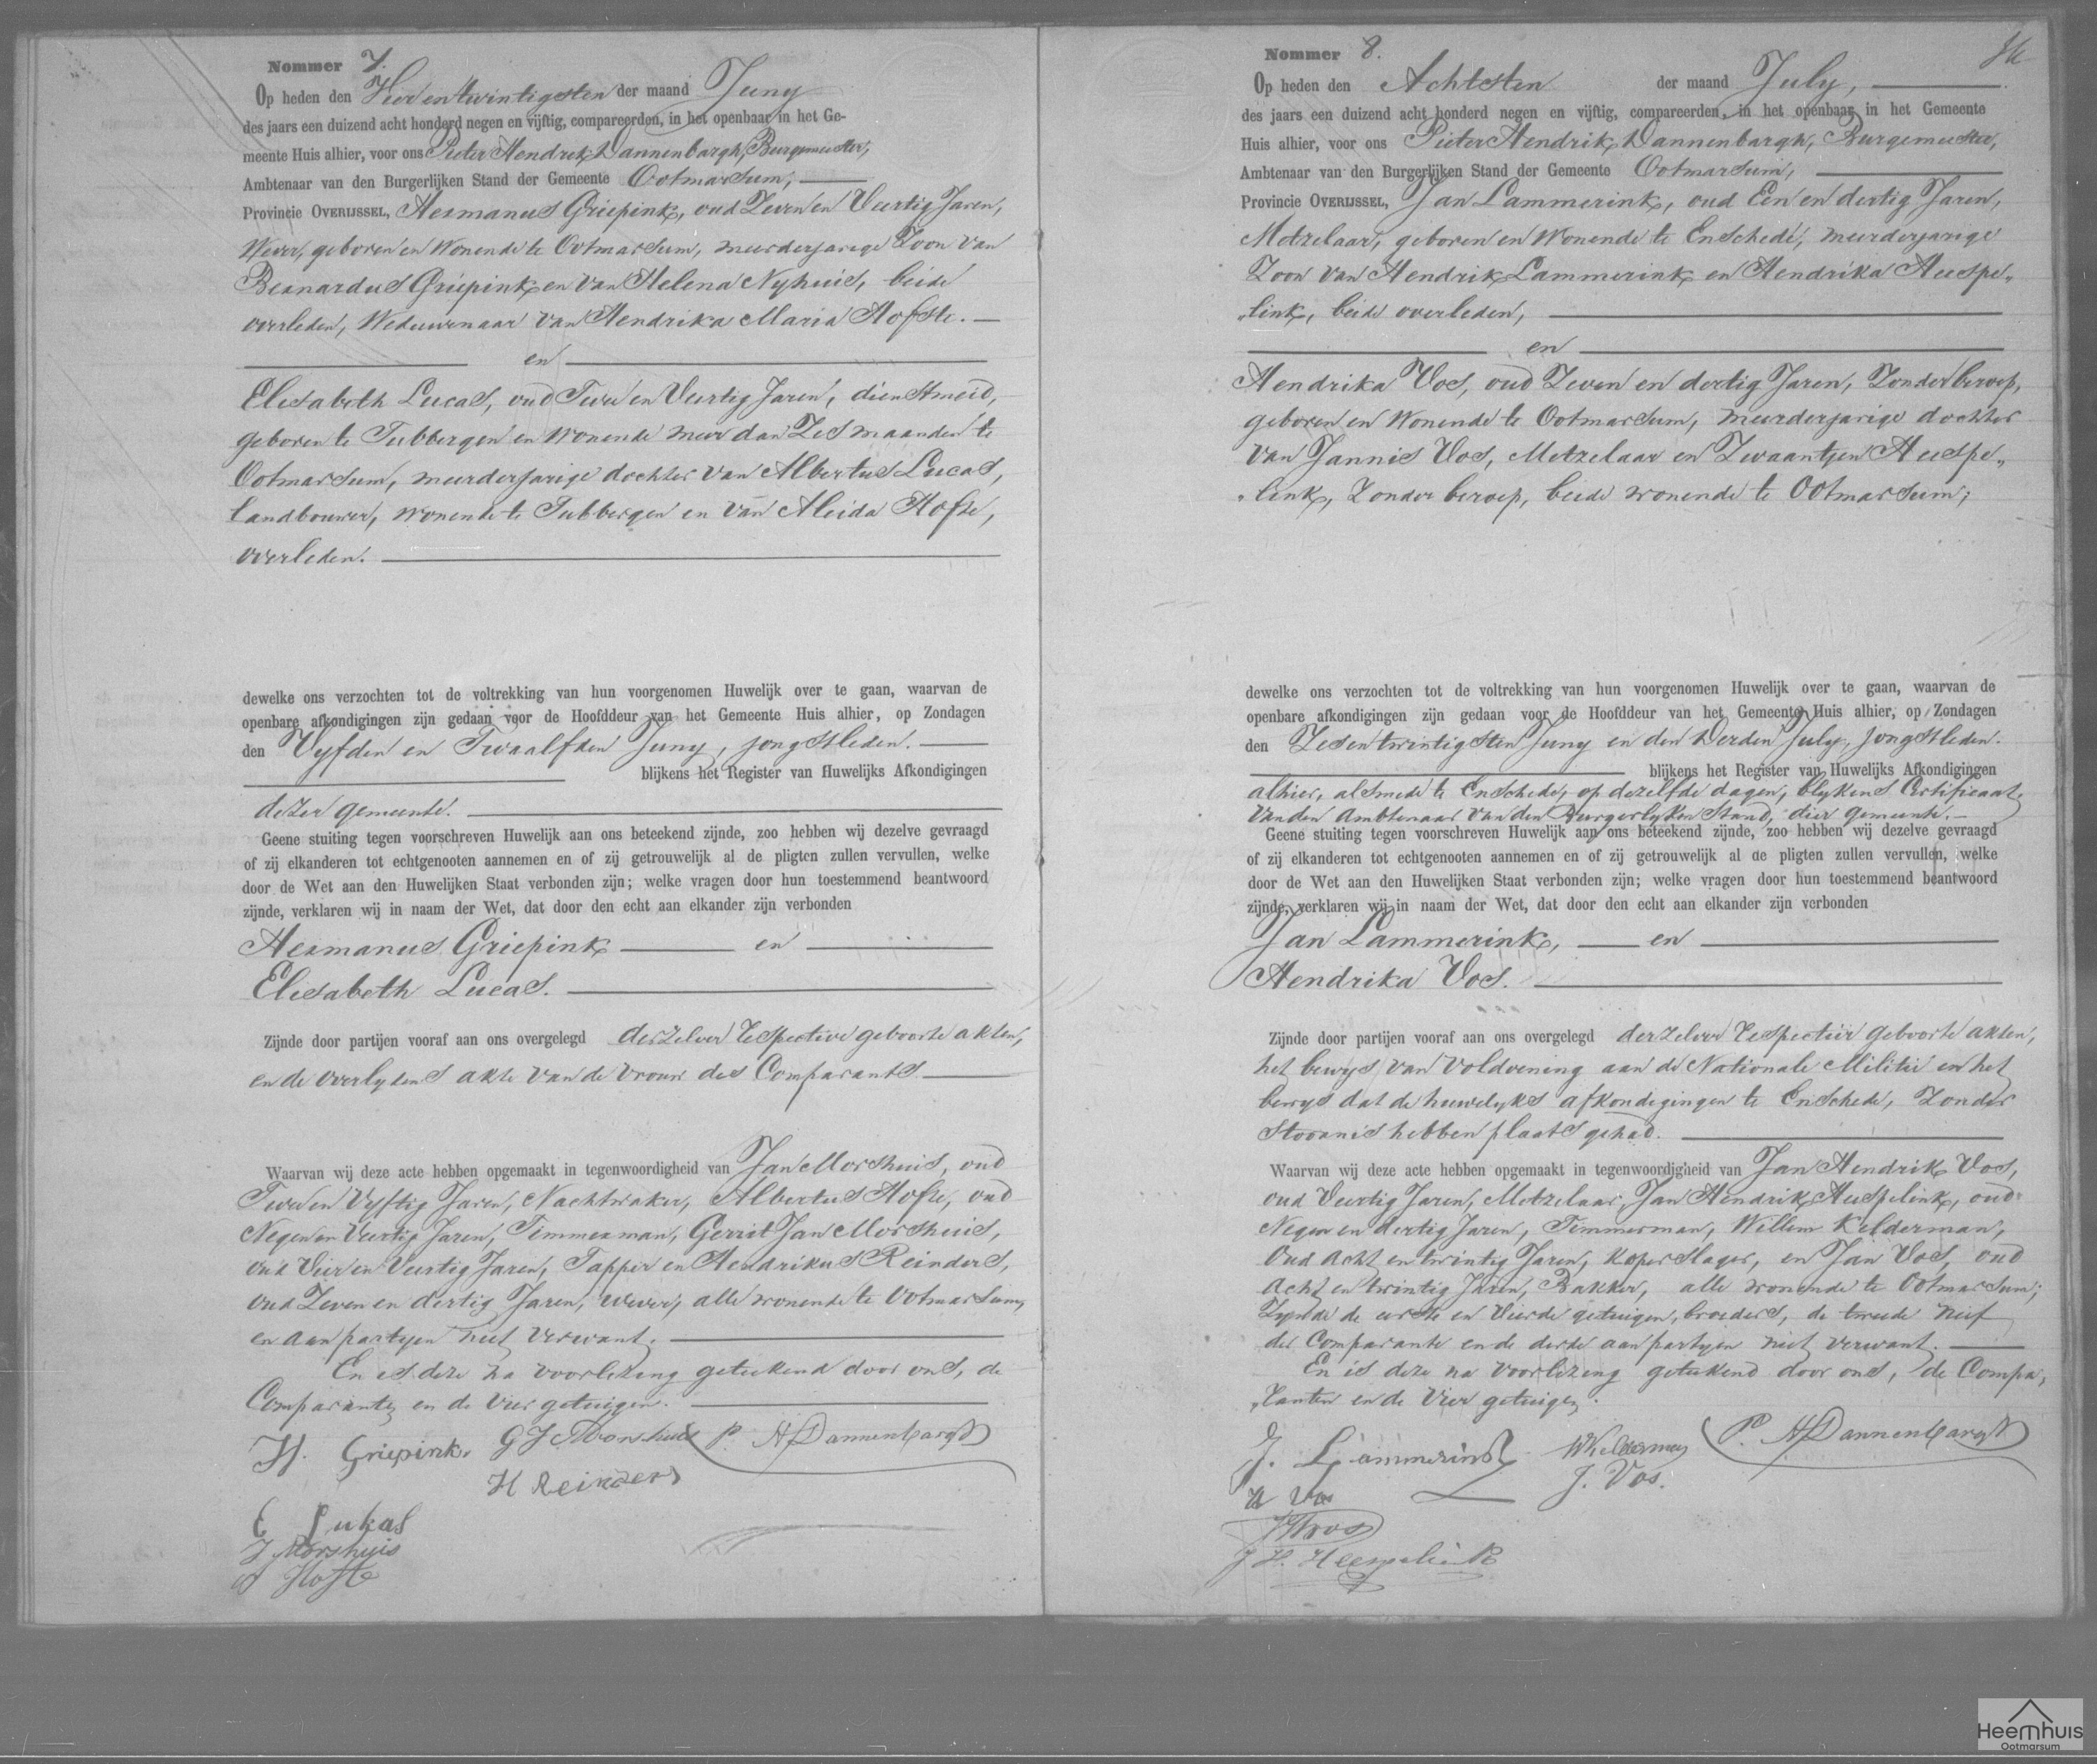 Nommer 7.
Op heden den Vier en twintigsten der maand Juny
des jaars een duizend acht honderd negen en vijftig, compareerden, in het openbaar in het Ge-
meente Huis alhier, voor ons Pieter Hendrik Dannenbargh, Burgemeester,
Ambtenaar van den Burgerlijken Stand der Gemeente Ootmarsum,
Provincie OVERIJSSEL, Hermanus Griepink, oud Zeven en Veertig Jaren,
Wever, geboren en Wonende te Ootmarsum, meerderjarige Zoon van
Bernardus Griepink en van Helena Nyhuis, beide
overleden, Weduwenaar van Hendrika Maria Hofste.
en
Elisabeth Lucas, oud Twee en Veertig Jaren, dienstmeid,
geboren te Tubbergen en Wonende meer dan Zes maanden te
Ootmarsum, meerderjarige dochter van Albertus Lucas,
landbouwer, wonende te Tubbergen en van Aleida Hofste,
overleden.
dewelke ons verzochten tot de voltrekking van hun voorgenomen Huwelijk over te gaan, waarvan de
openbare afkondigingen zijn gedaan voor de Hoofddeur van het Gemeente Huis alhier, op Zondagen
den Vyfden en Twaalfden Juny, jongstleden.
blijkens het Register van Huwelijks Afkondigingen
dezer gemeente.
Geene stuiting tegen voorschreven Huwelijk aan ons beteekend zijnde, zoo hebben wij dezelve gevraagd
of zij elkanderen tot echtgenooten aannemen en of zij getrouwelijk al de pligten zullen vervullen, welke
door de Wet aan den Huwelijken Staat verbonden zijn; welke vragen door hun toestemmend beantwoord
zijnde, verklaren wij in naam der Wet, dat door den echt aan elkander zijn verbonden
Hermanus Griepink en
Elisabeth Lucas.
Zijnde door partijen vooraf aan ons overgelegd derzelver respective geboorte akten,
en de overlydens akte van de vrouw des Comparants
Waarvan wij deze acte hebben opgemaakt in tegenwoordigheid van Jan Morshuis, oud
Twee en Vyftig Jaren, Nachtwaker, Albertus Hofste, oud
Negen en Veertig Jaren, Timmerman, Gerrit Jan Morshuis,
oud Vier en Veertig Jaren, Tapper en Hendrikus Reinders,
oud Zeven en dertig Jaren, wever, alle wonende te Ootmarsum,
en aan partyen niet verwant.
En is deze na voorlezing geteekend door ons, de
Comparanten en de vier getuigen.
H. Griepink. G J Morshuis P. H Dannenbargh
H Reinders
E Lukas
J Morshuis
A Hofte
Nommer 8.
Op heden den Achtsten der maand July,
des jaars een duizend acht honderd negen en vijftig, compareerden, in het openbaar in het Gemeente
Huis alhier, voor ons Pieter Hendrik Dannenbargh, Burgemeester,
Ambtenaar van den Burgerlijken Stand der Gemeente Ootmarsum,
Provincie OVERIJSSEL, Jan Lammerink, oud Een en dertig Jaren,
Metzelaar, geboren en Wonende te Enschedé, meerderjarige
Zoon van Hendrik Lammerink en Hendrika Heespe„
„link, beide overleden,
en
Hendrika Vos, oud Zeven en dertig Jaren, Zonder beroep,
geboren en Wonende te Ootmarsum, meerderjarige dochter
van Jannis Vos, Metzelaar en Zwaantjen Heespe„
„link, Zonder beroep, beide wonende te Ootmarsum;
dewelke ons verzochten tot de voltrekking van hun voorgenomen Huwelijk over te gaan, waarvan de
openbare afkondigingen zijn gedaan voor de Hoofddeur van het Gemeente Huis alhier, op Zondagen
den Zes en twintigsten Juny en den Derden July, jongstleden.
blijkens het Register van Huwelijks Afkondigingen
alhier, alsmede te Enschede, op dezelfde dagen, blykens Certificaat
van den Ambtenaar van den Burgerlyken Stand, dier gemeente.
Geene stuiting tegen voorschreven Huwelijk aan ons beteekend zijnde, zoo hebben wij dezelve gevraagd
of zij elkanderen tot echtgenooten aannemen en of zij getrouwelijk al de pligten zullen vervullen, welke
door de Wet aan den Huwelijken Staat verbonden zijn; welke vragen door hun toestemmend beantwoord
zijnde, verklaren wij in naam der Wet, dat door den echt aan elkander zijn verbonden
Jan Lammerink, en
Hendrika Vos.
Zijnde door partijen vooraf aan ons overgelegd derzelver respective geboorte akten,
het bewys van voldoening aan de Nationale Militie en het
bewys dat de huwelyks afkondigingen te Enschede, Zonder
Stoornis hebben plaats gehad.
Waarvan wij deze acte hebben opgemaakt in tegenwoordigheid van Jan Hendrik Vos,
oud Veertig Jaren, Metzelaar, Jan Hendrik Heespelink, oud
Negen en dertig Jaren, Timmerman, Willem Kelderman,
oud Acht en twintig Jaren, Koperslager, en Jan Vos, oud
Acht en twintig Jaren, Bakker, alle wonende te Ootmarsum;
Zynde de eerste en Vierde getuigen, broeders, de tweede neef
der Comparante en de derde aan partyen niet verwant.
En is deze na voorlezing geteekend door ons, de Compa„
„ranten en de vier getuigen.
J. Lammerink W Kelderman P. H Dannenbargh
H Vos J. Vos.
J H Vos
J H. Heespelink
Heemhuis
Ootmarsum